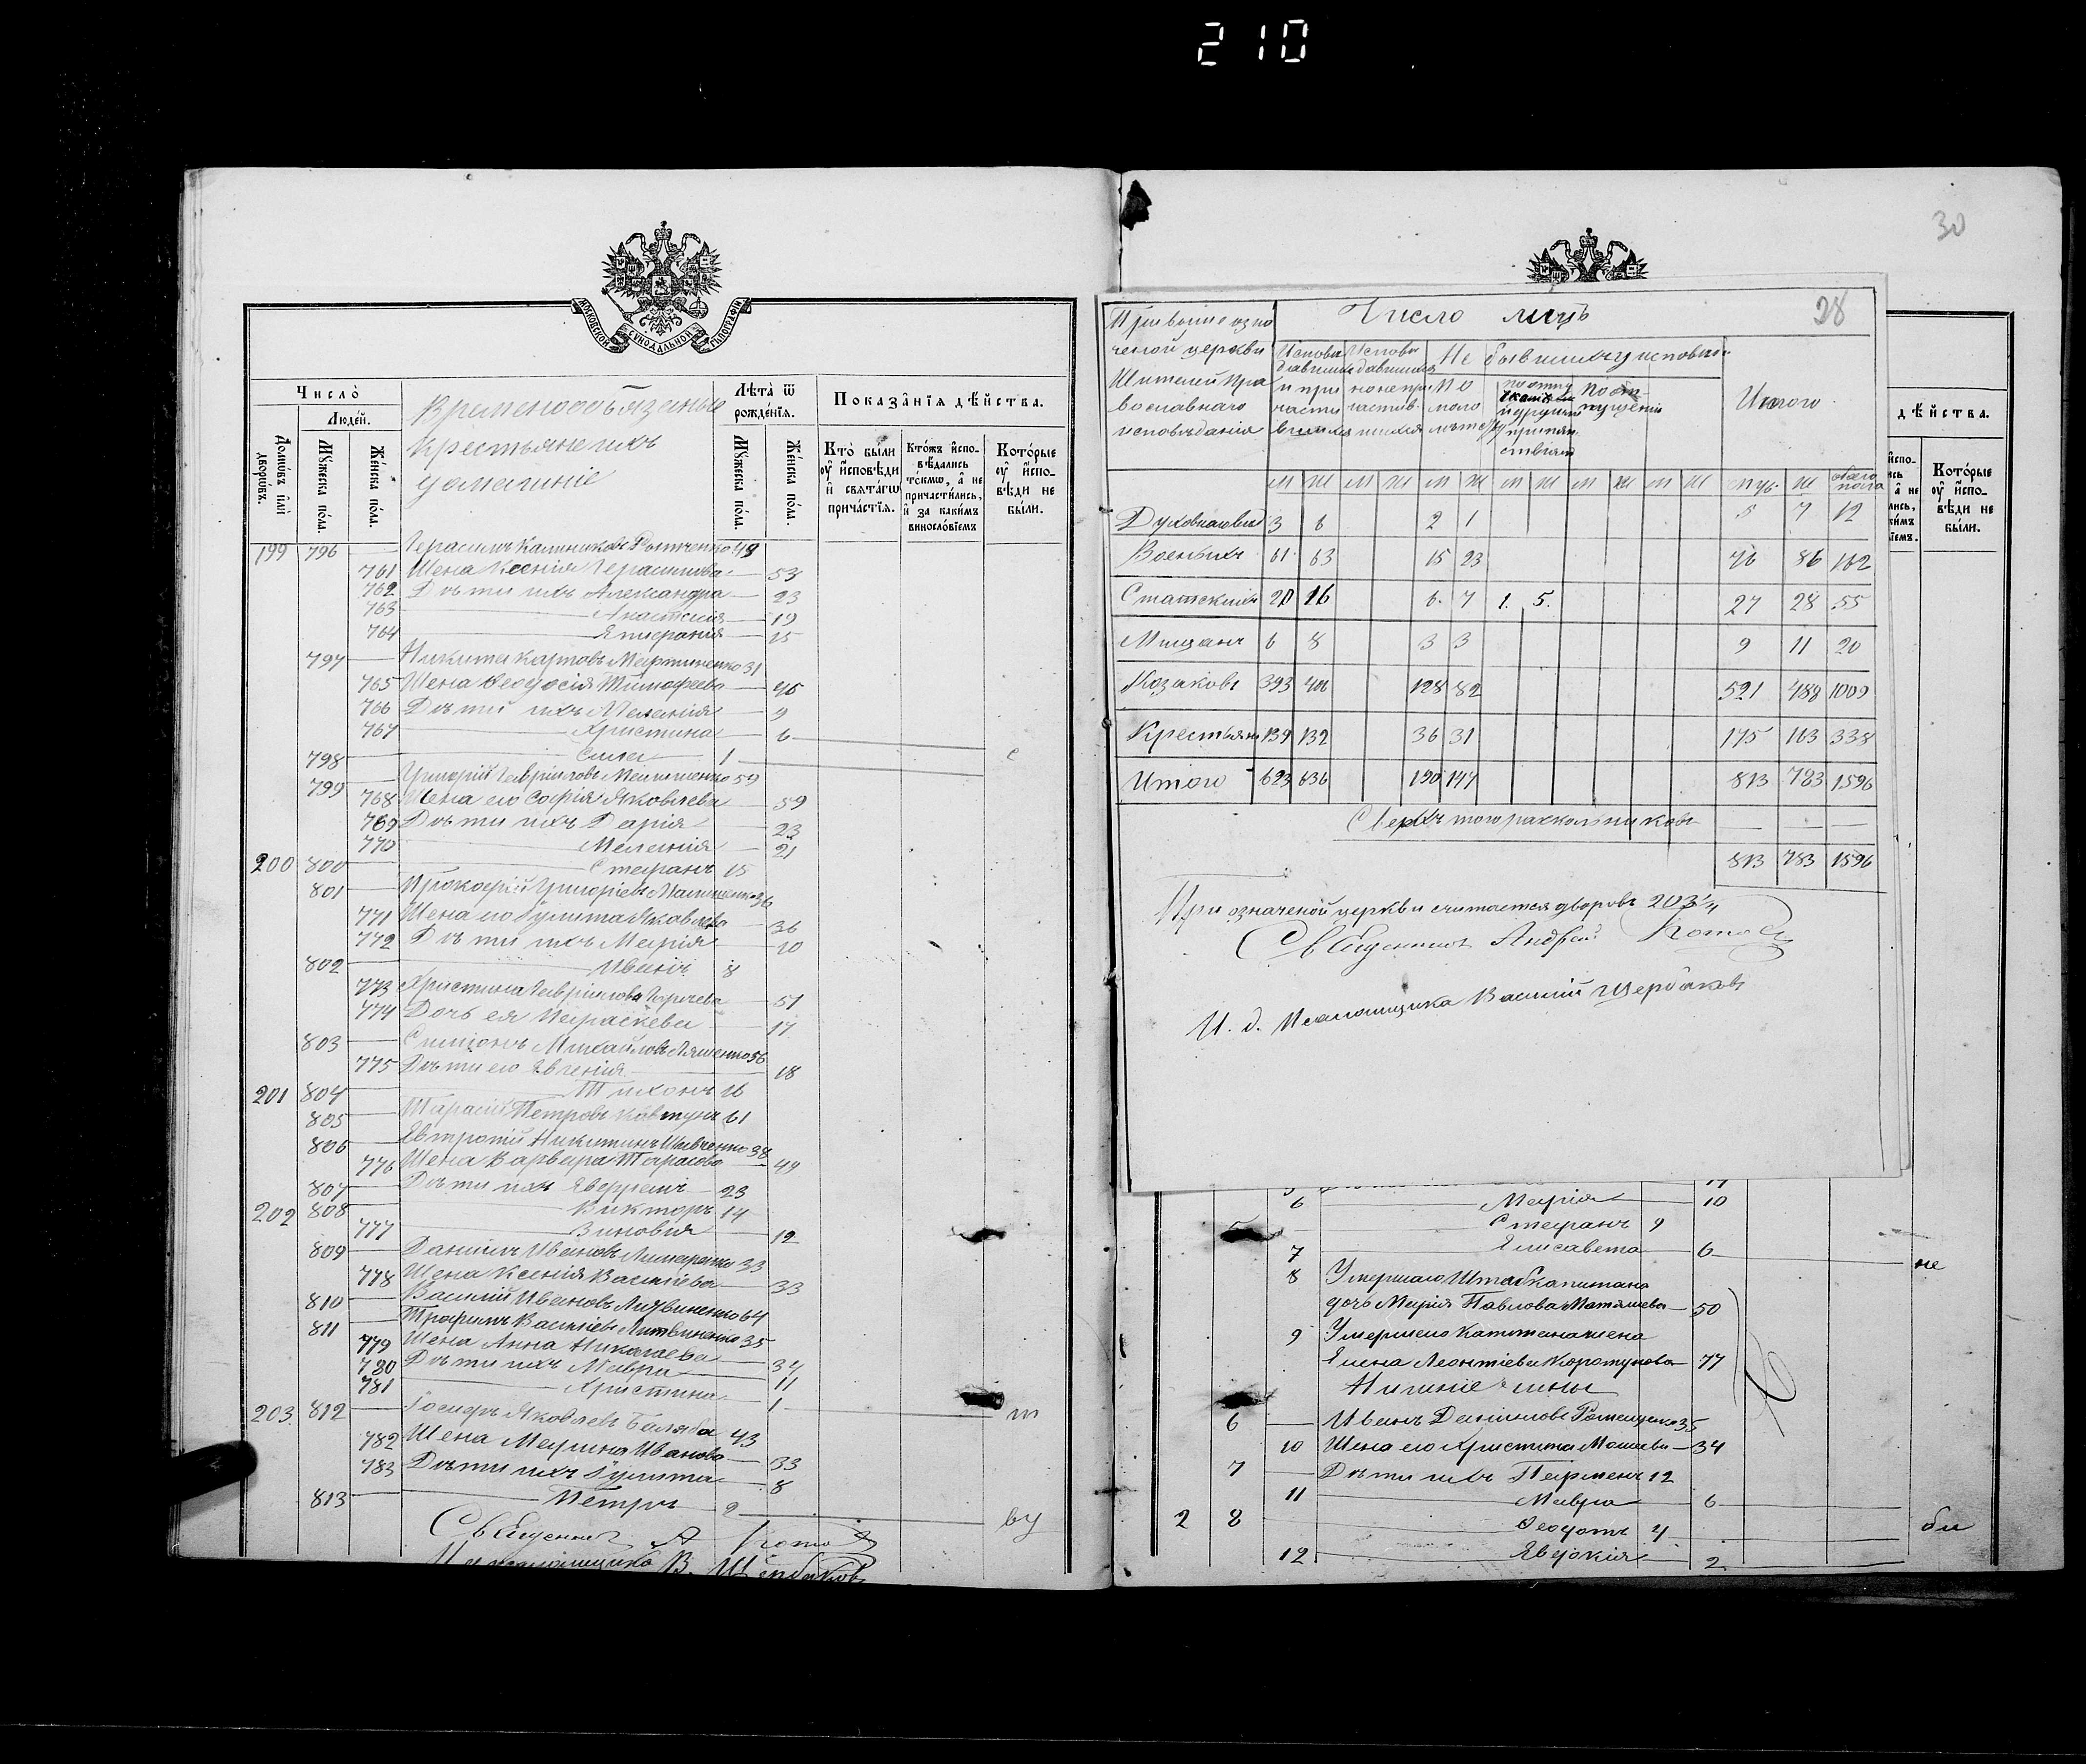 210
МОСКОВСКОЙ СѴНОДАЛЬНОЙ ТѴПОГРАФІИ
Число̀
Людей.
Домѡвъ и҆лѝ дворѡвъ.
Мꙋ́жеска по́ла.
Же́нска по́ла.
Временообязаные
крестьяне ихъ
домашніе
Лѣта̀ ѿ рожде́нїѧ.
Мꙋ́жеска по́ла.
Же́нска по́ла.
Показа̑нїѧ дѣ́йства.
Кто̀ бы́ли оу҆ и҆сповѣди и҆ свѧта́гѡ прича́стїѧ.
Кто́жъ и҆спо- вѣдались то́кмѡ, а҆ не причасти́лись, и҆ за каки́мъ винослові́емъ
Кото́рые оу҆ и҆спо- вѣди не были.
199 796 Герасимъ Калиниковъ 49
761 Жена Ксенія Герасимова 53
762 Дѣти ихъ Александра 23
763 Анастасія 19
764 15
797 Никита Карповъ Мартиненко 31
765 Жена Феодосія Тимофеева 46
766 Дѣти ихъ Меланія 9
767 Христина 6
798 Сила 1 с
799 Григорій Гавріиловъ 59
768 Жена его Софія Яковлева 59
769 Дѣти ихъ Дарія 23
770 Меланія 21
200 800 Стефанъ 15
801 Прокофій Григоріевъ 36
771 Жена его Гулита Яковлева 36
772 Дѣти ихъ Марія 10
802 Иванъ 8
773 Христина Гавріилова 51
774 Дочь ея Параскева 17
803 Симіонъ Михайловъ Ляшенко 56
775 Дѣти его Евгенія 18
201 804 Тихонъ 16
805 Тарасій Петровъ Ковтунъ 61
806 Евтропій Никитинъ Шевченко 38
776 Жена Варвара Тарасова 44
807 Дѣти ихъ 23
202 808 Викторъ 14
777 Зиновія 12
809 Даніилъ Ивановъ 33
778 Жена Ксенія Василіева 33
810 Василій Ивановъ Литвиненко 64
811 Трофимъ Василіевъ Литвиненко 35
779 Жена Анна Николаева 34
780 Дѣти ихъ Мавра 11
781 Христина 1 т
203 812 Іосифъ Яковлевъ Баляба 43
782 Жена Марина Иванова 33
783 Дѣти ихъ Гулита 8
813 Петръ 2 ву
Священникъ А
И д псаломщика В. Щербаковъ
30
28
При вышеозна
ченой церкви
Жителей пра
вославнаго
исповѣданія
Число лицъ
Исповѣ
давшихся
и при
частив
шихся
Исповѣ
давшихся
но не при
частив
шихся
Не бывшихъ у исповѣди
По
мало
лѣтству
По отлуч
камъ
и другимъ
препят
ствіямъ
По опу
щенію
Итого
М Ж М Ж М Ж М Ж М Ж М Ж муж. Ж обоего пола
Духовныхъ 3 6 2 1 5 7 12
Военныхъ 61 63 15 23 76 86 162
Статскихъ 20 16 6 7 1. 5. 27 28 55
Мищанъ 6 8 3 3 9 11 20
Козаковъ 393 406 128 82 521 488 1009
Крестьянъ 139 132 36 31 175 163 338
Итого 623 636 190 147 813 783 1596
Сверхъ того раскольниковъ — — —
813 783 1596
При означеной церкви считается дворовъ 203
Священникъ Андрей
И. д. Псаломщика Василій Щербаковъ
дѣ́йства.
Кото́рые оу҆ и҆спо- вѣди не были.
6 Марія 10
5 Стефанъ 9
7 Елисавета 6 не
8 Умершаго Штабкапитана
дочь Марія Павлова 50
9 Умершаго Капитана жена
Елена Леонтіева Коротунова 77
Нижніе чины
6 Иванъ Даніиловъ 35
10 Жена его Христина 34
7 Дѣти ихъ Парменъ 12
11 Мавра 6
2 8 Феодотъ 4 би
12 Евдокія 2